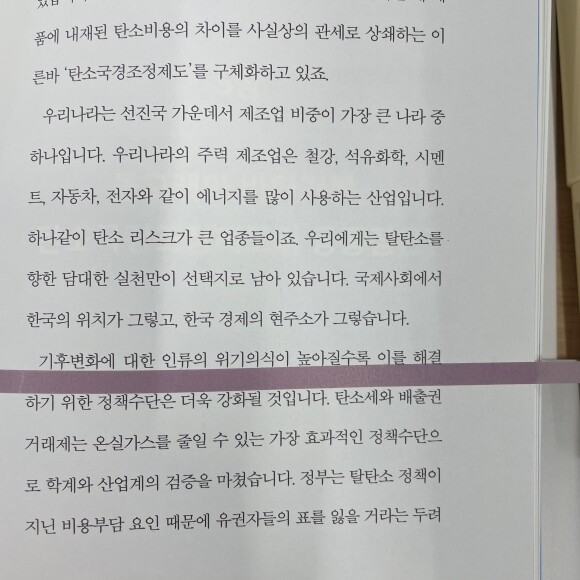 품에 내재된 탄소비용의 차이를 사실상의 관세로 상쇄하는 이
른바 ‘탄소국경조정제도’를 구체화하고 있죠.
우리나라는 선진국 가운데서 제조업 비중이 가장 큰 나라 중
하나입니다. 우리나라의 주력 제조업은 철강, 석유화학, 시멘
트, 자동차, 전자와 같이 에너지를 많이 사용하는 산업입니다.
하나같이 탄소 리스크가 큰 업종들이죠. 우리에게는 탈탄소를
향한 담대한 실천만이 선택지로 남아 있습니다. 국제사회에서
한국의 위치가 그렇고, 한국 경제의 현주소가 그렇습니다.
기후변화에 대한 인류의 위기의식이 높아질수록 이를 해결
하기 위한 정책수단은 더욱 강화될 것입니다. 탄소세와 배출권
거래제는 온실가스를 줄일 수 있는 가장 효과적인 정책수단으
로 학계와 산업계의 검증을 마쳤습니다. 정부는 탈탄소 정책이
지닌 비용부담 요인 때문에 유권자들의 표를 잃을 거라는 두려